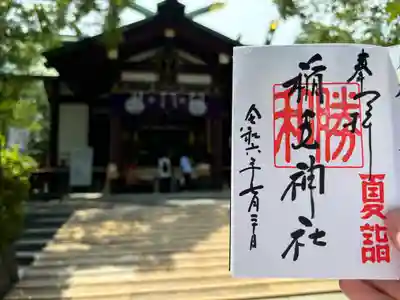 奉拝
夏詣
勝利
稲毛神社
令和六年七月三十日